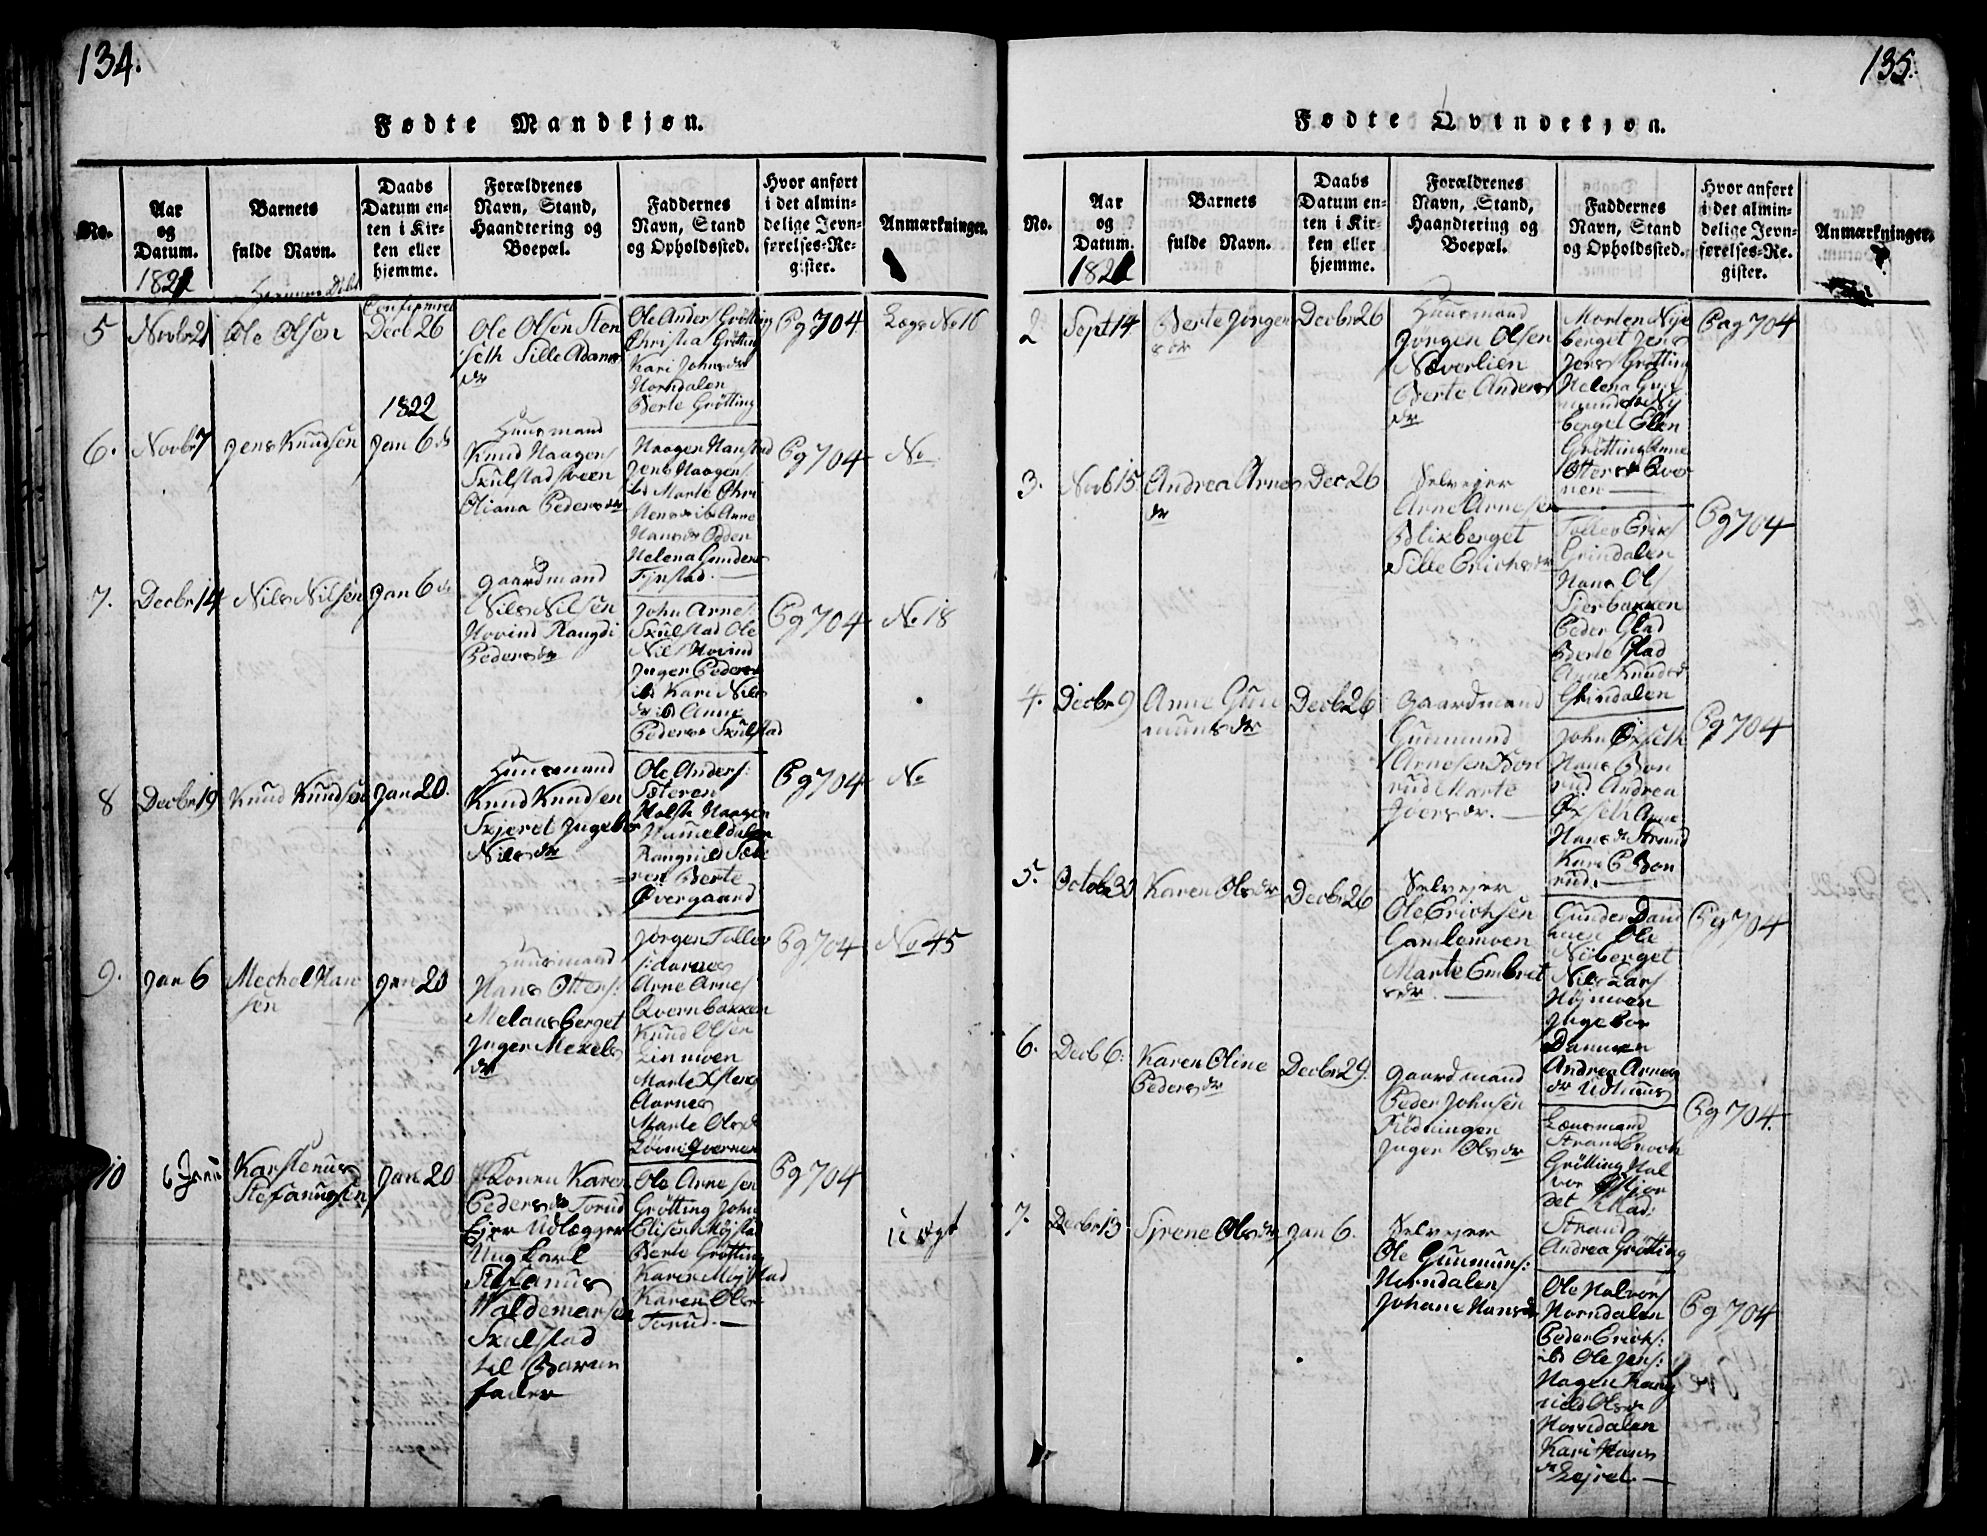 134.
Fødte Mandkjøn.
No.
Aar
og
Datum.
1821
Barnets
fulde Navn.
Daabs
Datum en-
ten i Kir-
ken eller
hjemme.
Forældrenes
Navn, Stand,
Haandtering og
Boepæl.
Faddernes
Navn, Stand
og Opholdssted.
Hvor anført
i det almin-
delige Jevn-
førelses-Re-
gister.
Anmærkninger.
5
Novbr 21
Ole Olsen
Decb 26
Ole Olsen Sten
seth Sille Adams
dr
Ole Anders Grøtting
Christia Grøttin
Kari Johnsdr
Horndalen
Berte Grøtting
Pg 704
Lægs No 16
1822
6.
Novbr 7
Jens Knudsen
Jan 6
Huusmand
Knud Haagens
Skulstadsveen
Oliana Pedersdr
Haagen Hanstad
Jens Haagens
ibd Marte Chri
Hansdr Odden
Helena Gunders
Fijnstad.
Pg 704
No
7.
Decbr 14
Nils Nilsen
Jan 6
Gaardmand
Nils Nilsen
Hovind Rangdi
Pedersdr
John Arnes
Skulstad Ole
Nils Hovind
Inger Peders
ib Kari Nils
dr ib Anne
Peders Skulstad
Pg 704
No 18
8
Decbr 19
Knud Knudsen
Jan 20.
Huusmand
Knud Knudsen
Skjeret Ingebor
Nilsdr
Ole Anders:
Sæteren
Halst Haagen
Hummeldalen
Rangnild Sæte
ren Berte
Øvergaard
Pg 704
No
9.
Jan 6
Mechel Han
sen
Jan 20
Huusmand
Hans Ottens:
Melaasberget
Inger Mekels
dr
Jørgen Tollev
s: Aarnes
Arne Arnes
Qvernbakken
Knud Olsen
Linmoen
Marte Xstens
Aarnes
Marte Olsd
Pg 704
No 45
10
6 Janu
Karstenus
Stefanussen
Jan 20
Konen Karen
Pedersdr Torud
Ejer Udlægger
Ungkarl
Stefanus
Waldemarsen
Skulstad
til Barne
fader
Ole Arnesen
Grøtting John
Elisen Møjstad
Berte Grøtting
Karen Møjstad
Karen Ols
Torud.
Pg 704
uægt
135.
Fødte Qvindekjøn.
No.
Aar
og
Datum.
1821
Barnets
fulde Navn.
Daabs
Datum en-
ten i Kir-
ken eller
hjemme.
Forældrenes
Navn, Stand,
Haandtering og
Boepæl.
Faddernes
Navn, Stand
og Opholdssted.
Hvor anført
i det almin-
delige Jevn-
førelses-Re-
gister.
Anmærkninger.
2
Sept 14
Berte Jørgen
sdr
Decbr 26
Huusmand
Jørgen Olsen
Næverlien
Berte Anders
dr
Morten Nye
berget Jens
Jens Grøtting
Helena Gun
munds Ny
berget Ellen
Grøtting Anne
Ottersdr Qver
nen
Pag 704
3.
Novb 15
Andrea Arnes
dr
Dec 26
Selvejer
Arne Arnesen
Blixberget
Sille Erichsdr
Tollev Eriks
Grindalen
Hans Ols
Sierbakken
Peder Glad
Berte Glad
Anne Knudsd
Grindalen
Pg 704
4.
Decbr 9
Anne Gun
munsdr
Decbr 26
Gaardmand
Gunmund
Arnesen Bon
rud Marte
Joersdr.
John Øxseth
Hans Bon
rud Andrea
Øxseth Arne
Hansd Strand
Kari P Bon
rud.
Pg 704
5.
Octobr 30
Karen Olsdr
Decbr 26
Selvejer
Ole Erichsen
Gamlemoen
Marte Embret
sdr.
Gunder Dam
moen Ole
Nyberget
Nils Lars
Højmoen
Ingebor
Dammen
Andrea Arnes
dr Udhuus
Pg 704
6.
Decb 6.
Karen Oline
Pedersdr
Decbr 29.
Gaardmand
Peder Johnsen
Flødningen
Inger Olsdr
Lænsmand
Strand Erich
Grøtting Hal
vor Skjær
det Mad:
Strand
Andrea Grøtting
Pg 704.
7.
Decbr 13
Syrene Olsdr
Jan 6.
Selvejer
Ole Gunmuns:
Horndalen
Johane Hansdr
Ole Halvors
Horndalen
Peder Erichs:
ibd Ole Jens:
Hagen Rang
nild Olsdr
Horndalen
Kari Hans
dr Lejret.
Pg 704